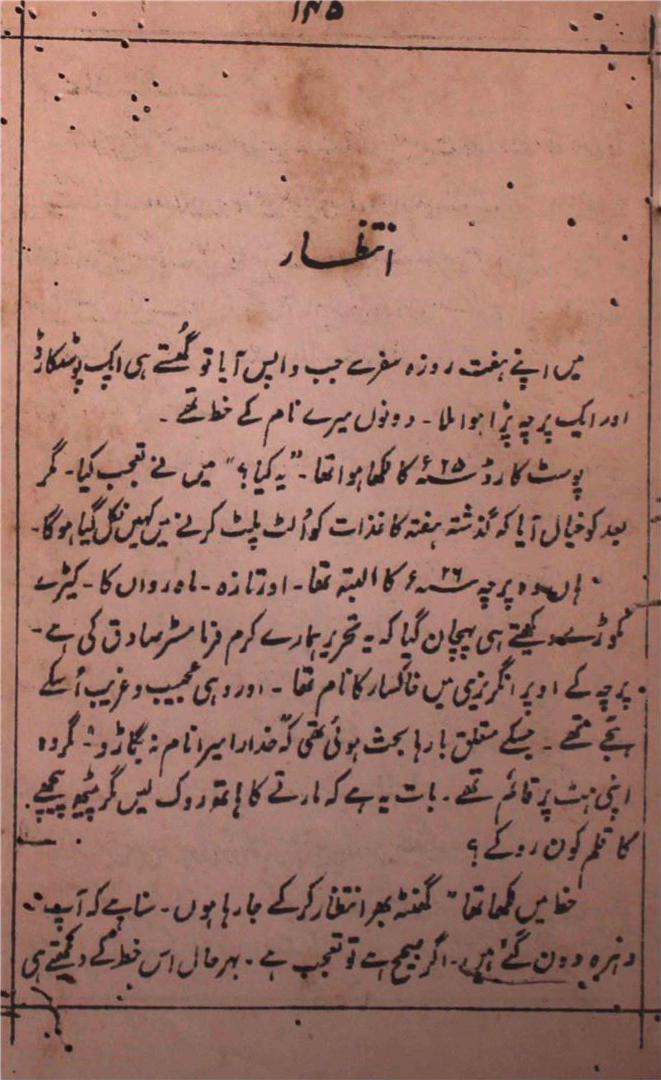 ۱۴۵
انتظار
میں اپنے ہفت روزہ سفر سے جب واپس آیا تو گھستے ہی ایک پوسٹکارڈ
اور ایک پرچہ پڑا ہوا ملا۔ دونوں میرے نام کے خط تھے۔
پوسٹ کارڈ ۲۵ء کا لکھا ہوا تھا۔ "یہ کیا؟" میں نے تعجب کیا۔ مگر
بعد کو خیال آیا کہ گذشتہ ہفتہ کاغذات کو اُلٹ پلٹ کرنے میں کہیں نکل گیا ہوگا۔
ہاں وہ پرچہ ۲۶ء کا البتہ تھا۔ اور تازہ۔ ماہ رواں کا۔ کیڑے
مکوڑے دیکھتے ہی پہچان گیا کہ یہ تحریر ہمارے کرم فرما مسٹر صادق کی ہے۔
پرچہ کے اوپر انگریزی میں خاکسار کا نام تھا۔ اور وہی عجیب و غریب اُسکے
ہجے تھے۔ جسکے متعلق بارہا بحث ہوئی تھی کہ "خدارا میرا نام نہ بگاڑو" مگر وہ
اپنی ہٹ پر قائم تھے۔ بات یہ ہے کہ مارتے کا ہاتھ روک لیں مگر پیٹھ پیچھے
کا قلم کون روکے؟
خط میں لکھا تھا "گھنٹہ بھر انتظار کرکے جارہا ہوں۔ سنا ہے کہ آپ
دہرہ دون گئے ہیں۔ اگر صحیح ہے تو تعجب ہے۔ بہرحال اس خط کے دیکھتے ہی